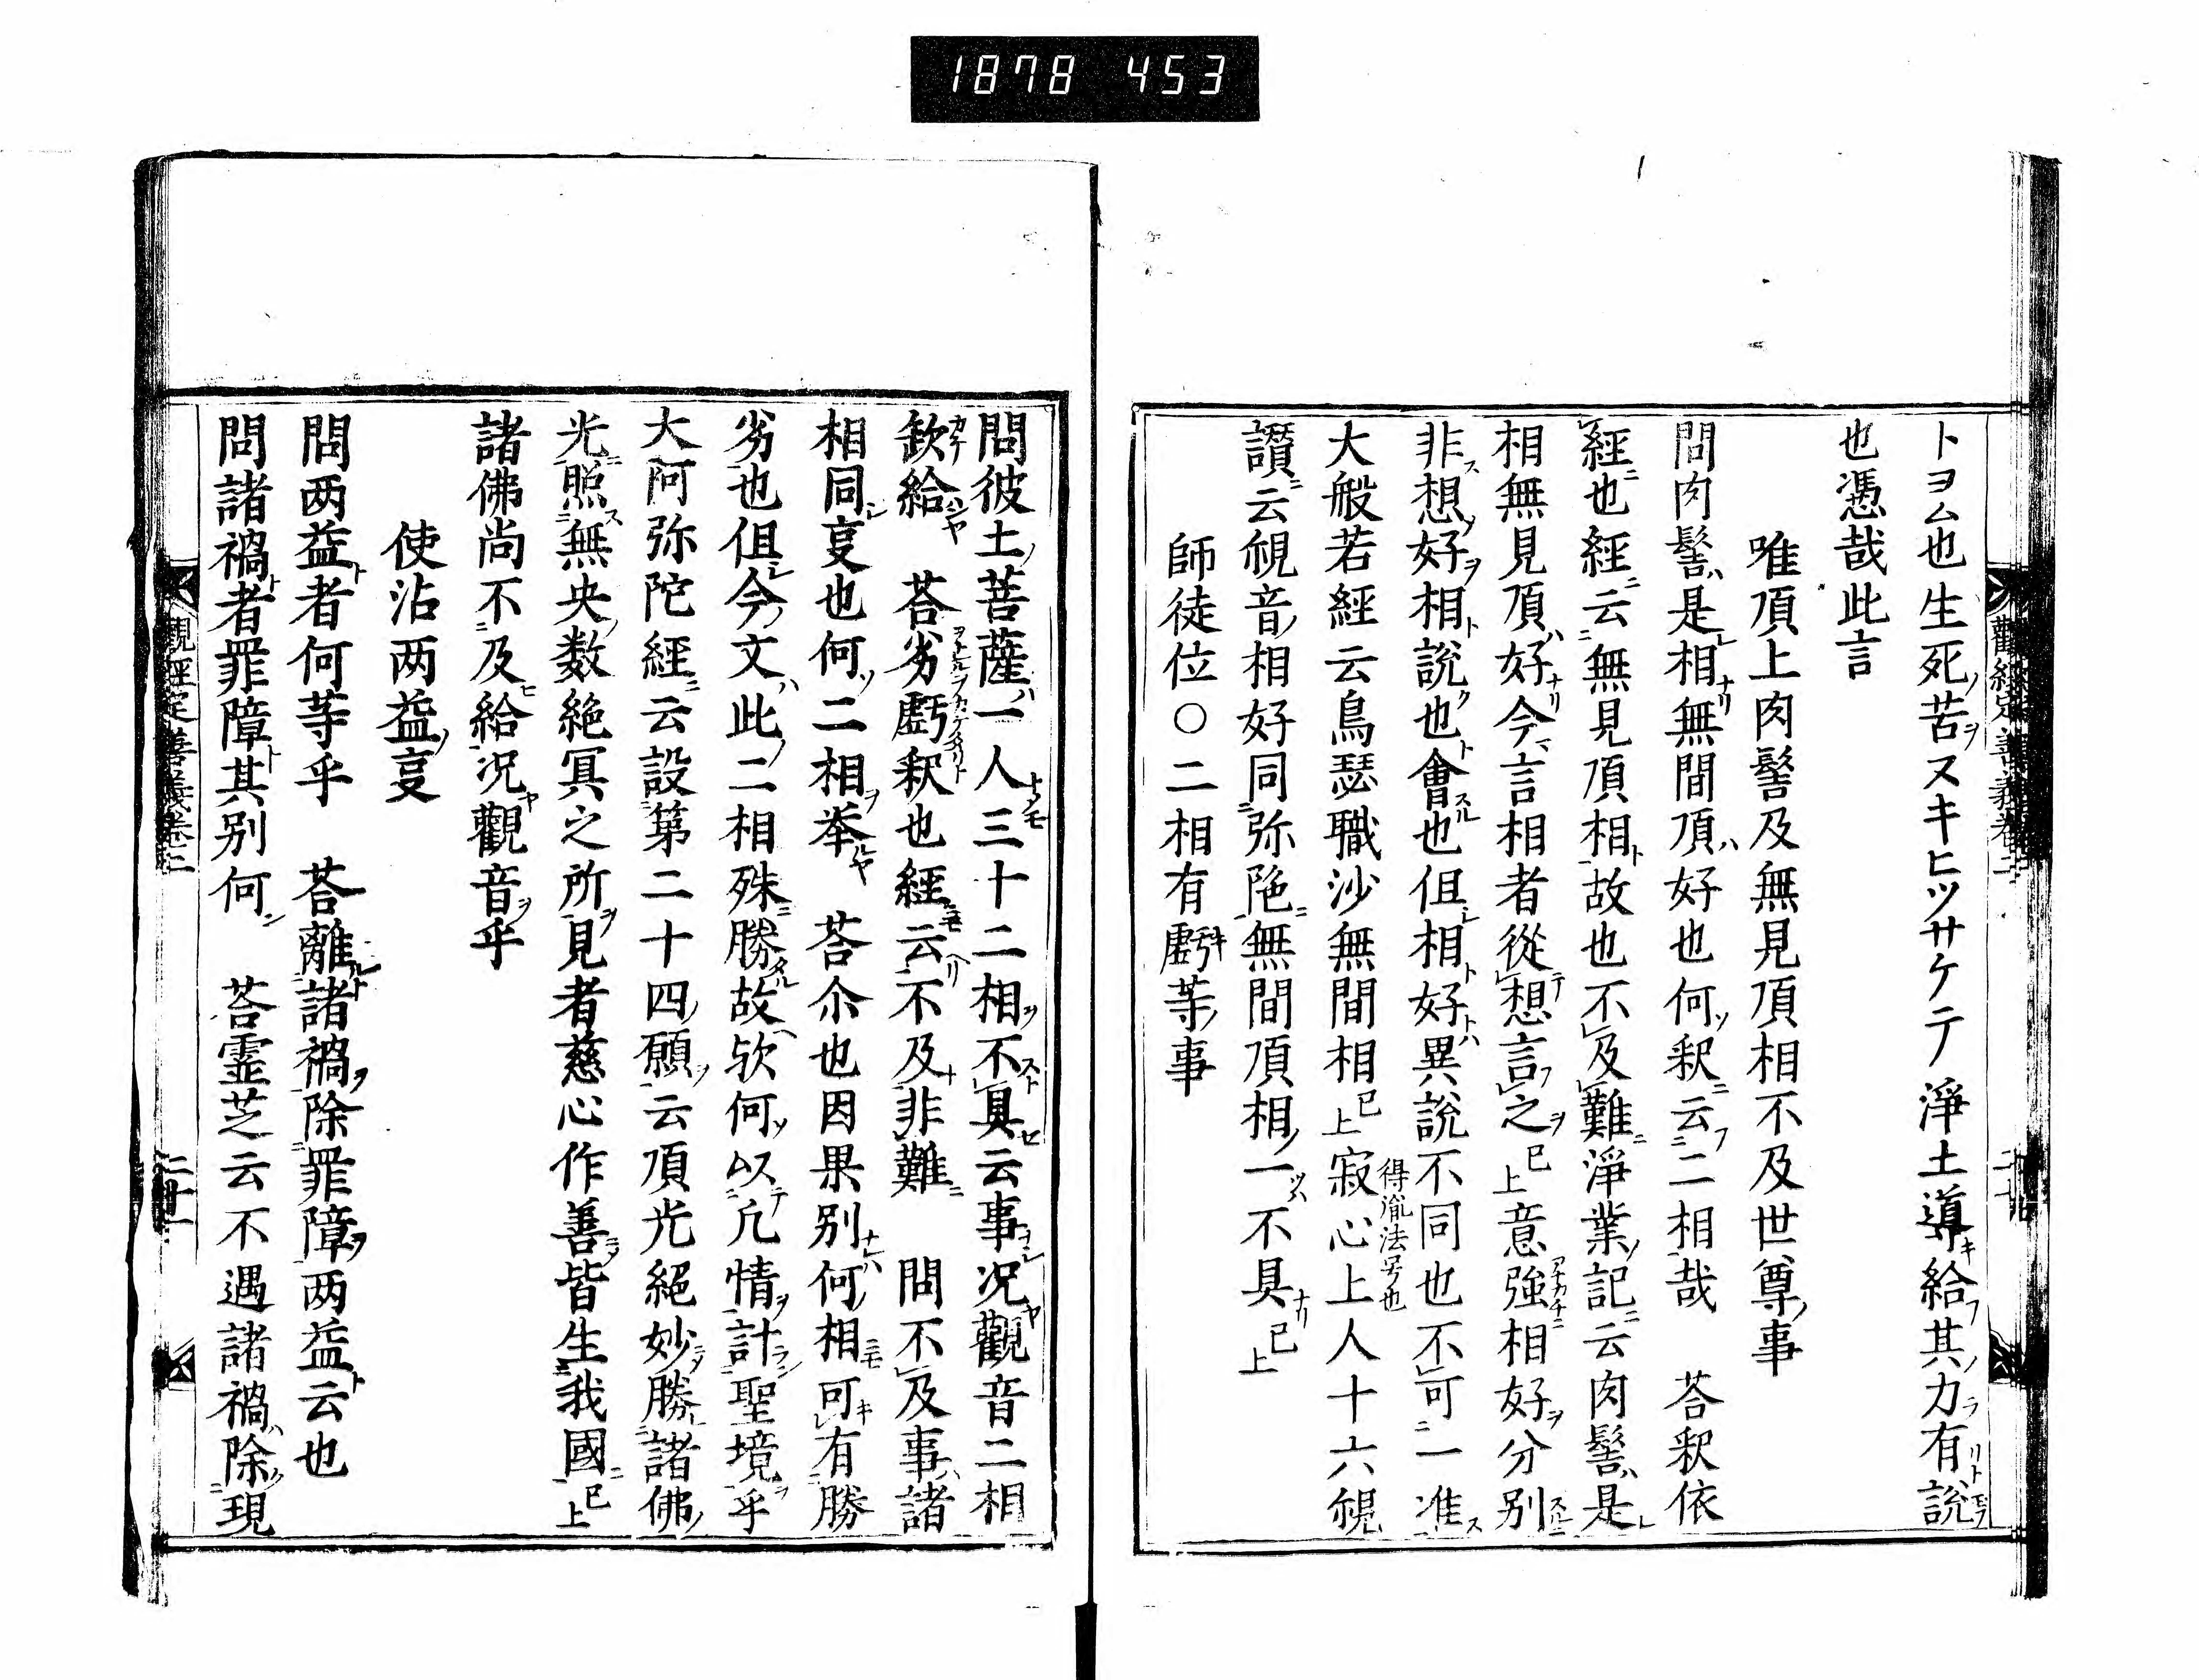 1878 453
トヨム也生死苦スキヒツサケテ淨土導給其力有說
也憑哉此言
唯頂上肉髻及無見頂相不及世尊事
問肉髻是相無間頂好也何釈云二相哉　荅釈依
經也經云無見頂相故也不及難淨業記云肉髻是
相無見頂好今言相者從想言之已上意強相好分別
非想好相說也會也但相好異說不同也不可一准
大般若經云鳥瑟職沙無間相已上寂心上人十六𮗚
得㣧法号也
讚云𮗚音相好同弥陁無間頂相一不具已上
師徒位○二相有虧等事
問彼土菩薩一人三十二相不具云事况觀音二相
欽給　荅劣虧釈也經云不及非難　問不及事諸
相同㕝也何二相举　荅尒也因果別何相可有勝
劣也但今文此二相殊勝故欤何以凢情計聖境乎
大阿弥陀經云設第二十四願云頂光絕妙勝諸佛
光照無央数絶冥之所見者慈心作善皆生我國已上
諸佛尚不及給况觀音乎
使沾两益㕝
問两益者何等乎　荅離諸禍除罪障两益云也
問諸禍者罪障其別何　荅霊芝云不遇諸禍除現